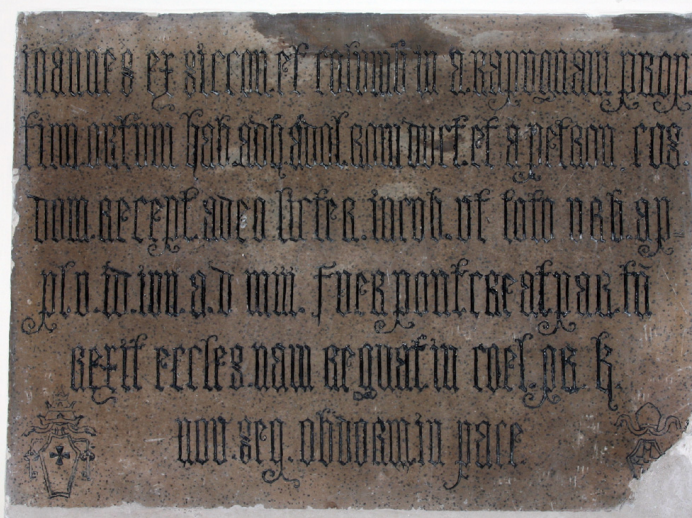 ioannes ex siccon. et colomb. in a. rapugnam propi
tium. ortum hab. adh. adol. rom. duct. et a petron. cos.
dom. recept. adeo litter. incob. ut toto urb. ap-
pl. v. id. iun. a. d. miii. fuer. pont. creat. par. tū
rexit eccles. nam regnat in coel. pr. k.
nov. seq. obdorm. in pace.